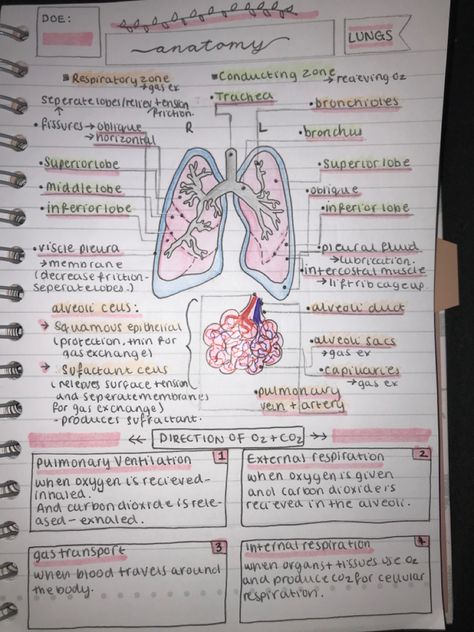 DOE:
anatomy
LUNGS
Respiratory zone
→ gas ex
Conducting zone
→ recieving O2
seperate lobes/reliev tension
friction.
• fissures → oblique
→ horizontal
R
L
• Trachea
• bronchioles
• bronchus
• Superior lobe
• Middle lobe
• inferior lobe
• Superior lobe
• oblique
• inferior lobe
• viscle pleura
→ membrane
(decrease friction-
seperate lobes.)
• pleural fluid
→ lubrication.
• intercostal muscle
→ lift rib cage up.
alveoli cells:
→ Squamous epithelial
(protection, thin for
gas exchange)
→ Sufactant cells
(relieves surface tension
and seperate membranes
for gas exchange)
- produces suffractant.
• alveoli duct
• alveoli sacs
→ gas ex
• capillaries
→ gas ex
• pulmonary
vein + artery
<< DIRECTION OF O2 + CO2 >>
Pulmonary Ventilation 1
when oxygen is recieved-
inhaled.
And carbon dioxide is rele-
ased - exhaled.
External respiration 2
when oxygen is given
and carbon dioxide is
recieved in the alveoli.
gas transport 3
when blood travels around
the body.
Internal respiration 4
when organs + tissues use O2
and produce CO2 for cellular
respiration.